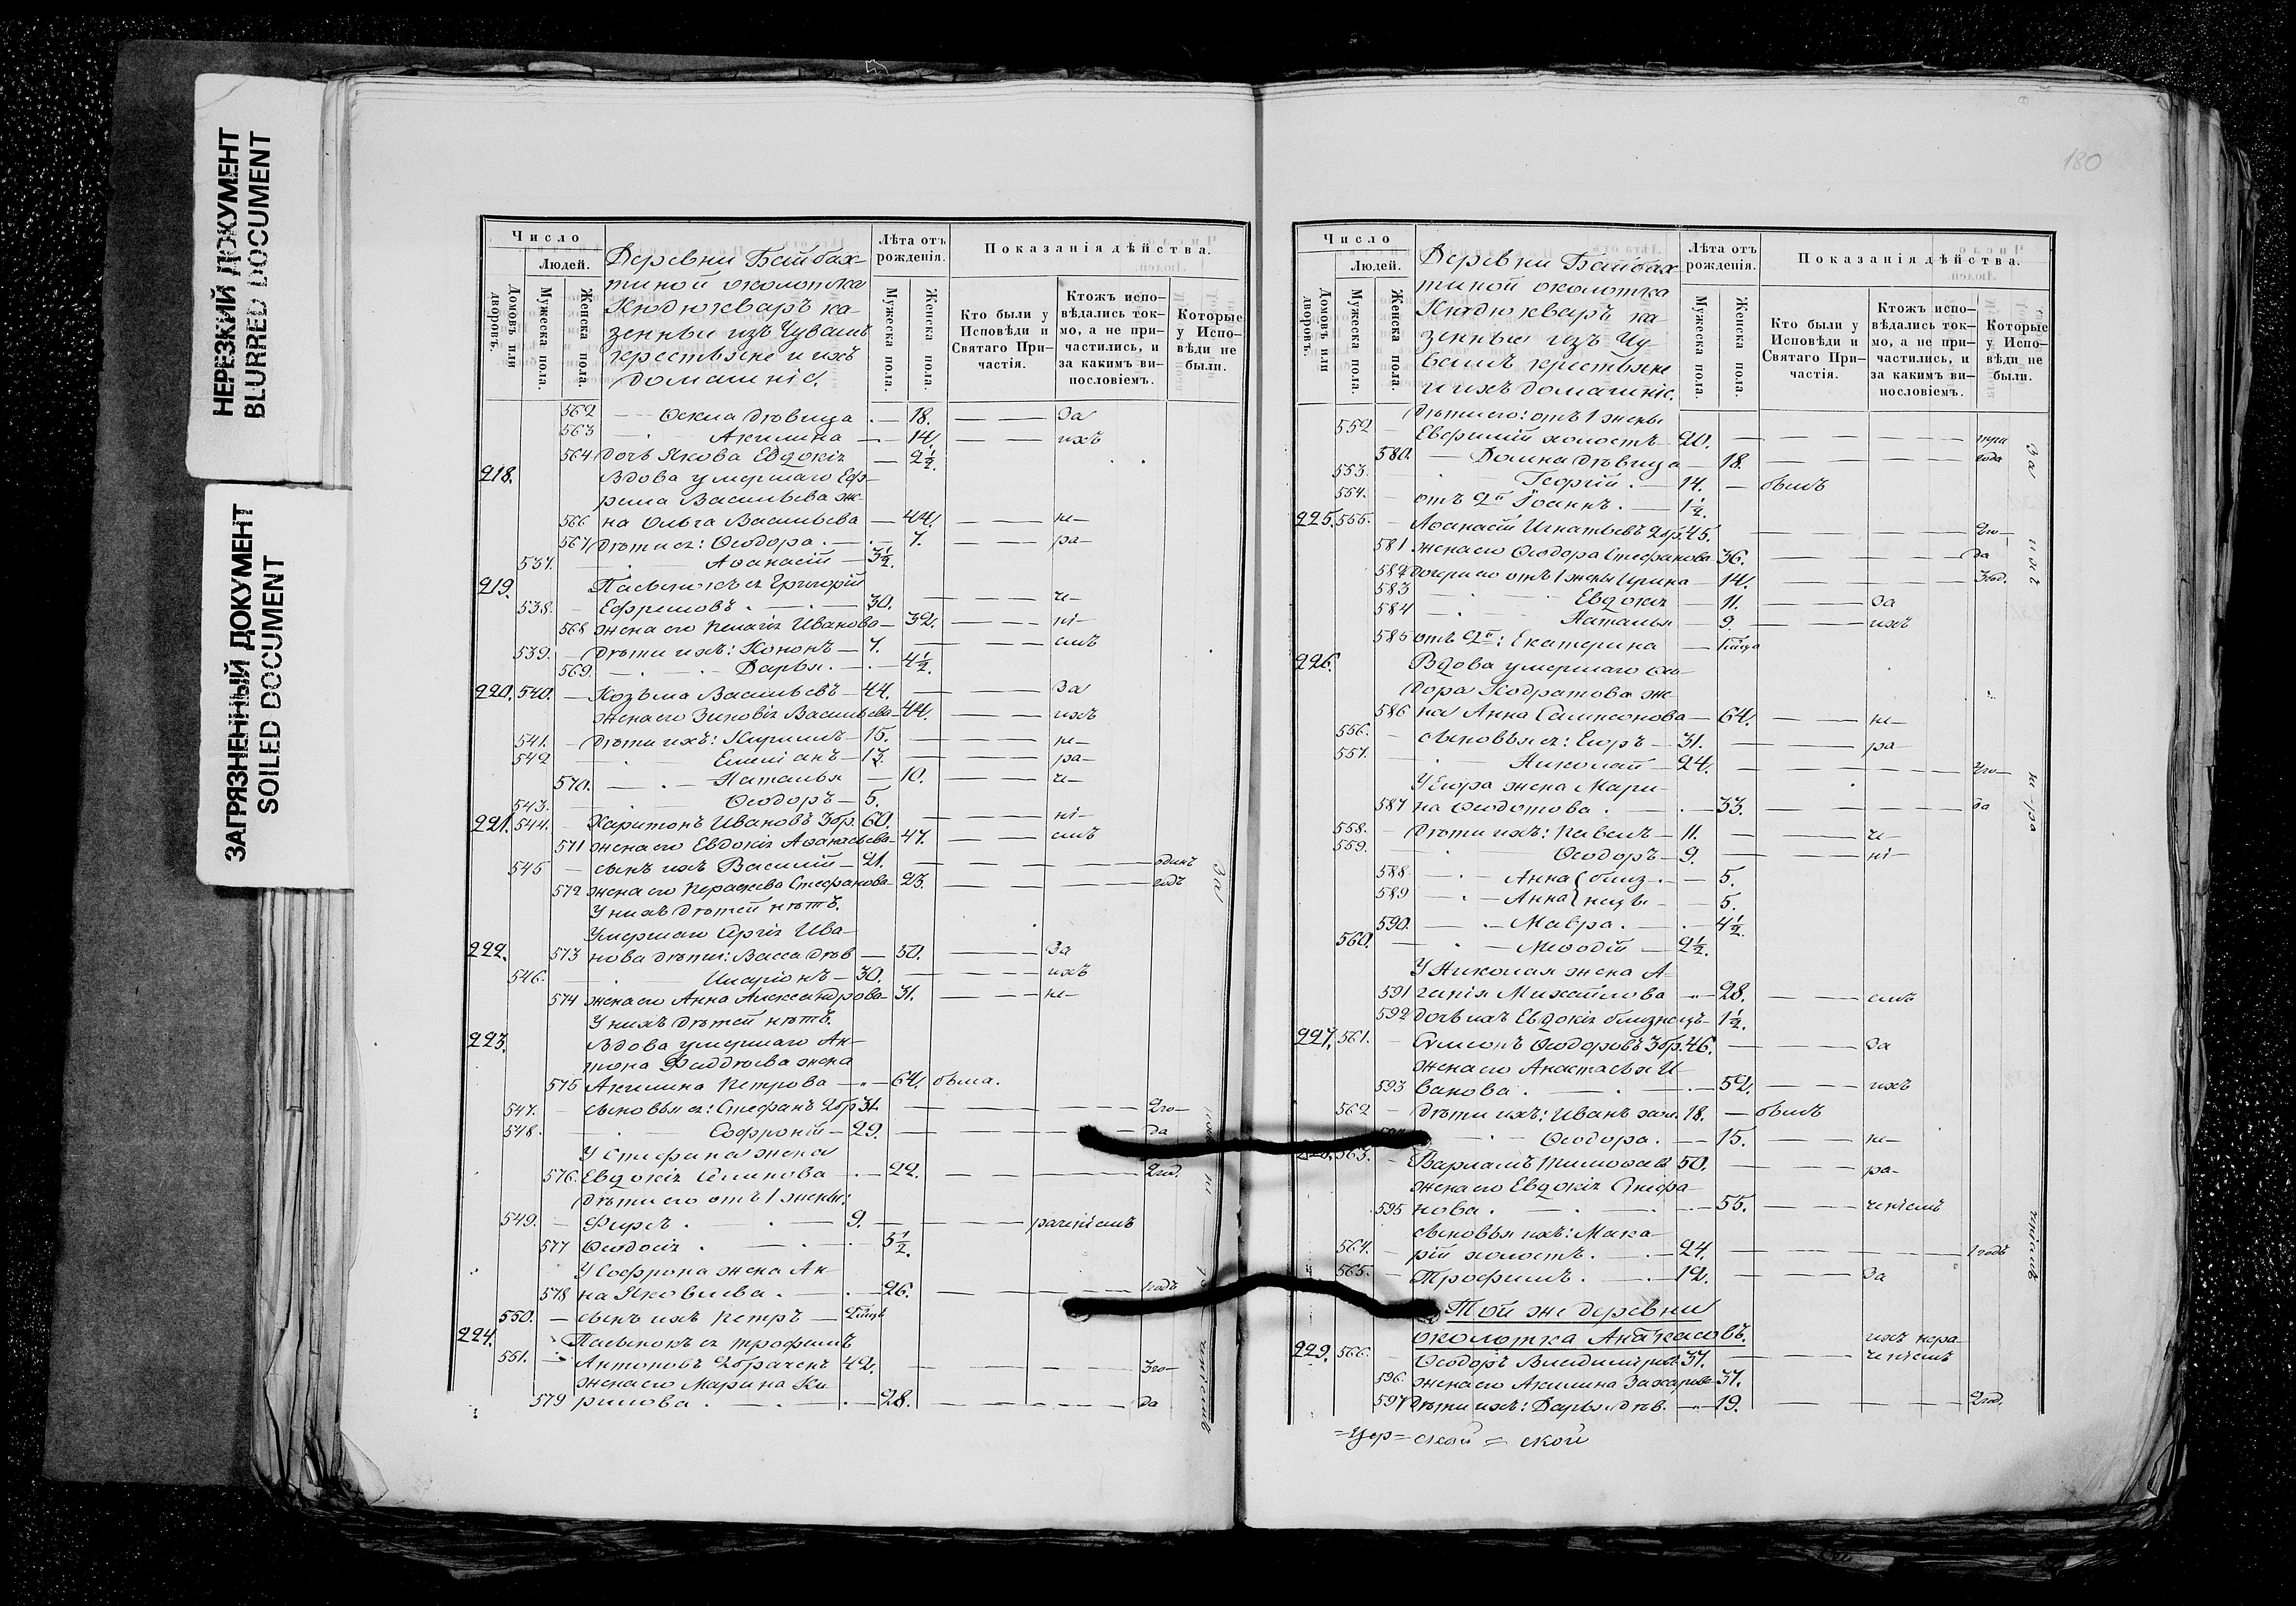 НЕРЕЗКИЙ ДОКУМЕНТ
BLURRED DOCUMENT
ЗАГРЯЗНЕННЫЙ ДОКУМЕНТ
SOILED DOCUMENT
Число
Людей.
Домовъ или дворовъ.
Мужеска пола.
Женска пола.
Деревни Байбах-
тиной околотка
Кюдюкваръ ка-
зенные изъ Чувашъ
крестьяне и ихъ
домашніе.
Лѣта отъ рожденія.
Мужеска пола.
Женска пола.
Показанія дѣйства.
Кто были у Исповѣди и Святаго При-частія.
Ктожъ испо-вѣдались ток-мо, а не при-частились, и за какимъ ви-пословіемъ.
Которые у Испо-вѣди не были.
562 — дѣвица — 18. — — За
563 — Акилина — 14. — — ихъ
564 дочь Якова Евдокія — 2½.
218. Вдова умершаго Еф-
рема Васильева же-
566 на Ольга Васильева — 44. — — не-
567 дѣти ея: Ѳеодора — 7. — — ра-
537. Аѳанасій — 3½.
219. Пасынокъ ея Григорій
538. Ефремовъ — 30. — — че-
568 жена его Пелагія Иванова — 32. — — ні-
539. дѣти ихъ: Кононъ — 7. — — емъ
569. Дарья — 4½.
220. 540. Козьма Васильевъ — 44. — — За
жена его Зиновія Васильева — 44. — — ихъ
541. дѣти ихъ: Кириллъ — 15. — — не-
542 Емеліанъ — 13. — — ра-
570. Наталья — 10. — — че-
543. Ѳеодоръ — 5.
221. 544. Харитонъ Ивановъ 3бр. 60. — — ні-
571 жена его Евдокія Аѳанасьева — 47. — — емъ
545 сынъ ихъ Василій — 21. — — одинъ
572 жена его Параскева Стефанова — 23. — — годъ
У нихъ дѣтей нѣтъ.
Умершаго Сергія Ива-
222. 573 нова дѣти: Васса дѣв — 50. — — За
546. Иларіонъ — 30. — — ихъ
574 жена его Анна Александрова — 31. — — не-
У нихъ дѣтей нѣтъ.
223. Вдова умершаго Ан-
тона Фаддѣева жена
575 Акилина Петрова — 64. была.
547. сыновья ея: Стефанъ 2бр 31. — — 2го-
548. Софроній — 29. — — да
У Стефана жена
576. Евдокія Семенова — 22. — — 2год.
дѣти его отъ 1 жены:
549. Фирсъ — 9. — — раченіемъ
577 Ѳеодосія — 5½.
У Софрона жена Ан-
578 на Яковлева — 26. — — 1годъ
550. сынъ ихъ Петръ —
224. Пасынокъ ея Трофимъ
551. Антоновъ 2браченъ 42. — — 3го-
жена его Марина Ки-
579 рилова — 28. — — да
За
ихъ
не
раченіемъ
180
Число
Людей.
Домовъ или дворовъ.
Мужеска пола.
Женска пола.
Деревни Байбах-
тиной околотка
Кюдюкваръ ка-
зенные изъ Чу-
вашъ крестьяне
и ихъ домашніе.
Лѣта отъ рожденія.
Мужеска пола.
Женска пола.
Показанія дѣйства.
Кто были у Исповѣди и Святаго При-частія.
Ктожъ испо-вѣдались ток-мо, а не при-частились, и за какимъ ви-пословіемъ.
Которые у Испо-вѣди не были.
дѣти его: отъ 1 жены
552 Евфимій холостъ — 20. — — три
580. Домна дѣвица — 18. — — года
553. Георгій — 14. — былъ
554. отъ 2й Іоаннъ — 1½.
225. 555. Аѳанасій Игнатьевъ 2бр. 45. — — 2го-
581 жена его Ѳеодора Стефанова 36. — — да
582 дочери его отъ 1 жены Ирина — 14. — — 3год.
583 Евдокія — 11. — — За
584 Наталья — 9. — — ихъ
585 отъ 2й: Екатерина —
226. Вдова умершаго Ѳео-
дора Кодратова же-
586 на Анна Сампсонова — 64. — — не-
556. сыновья ея: Егоръ — 31. — — ра-
557. Николай — 24. — — 2го-
У Егора жена Мари-
587 на Ѳедотова — 33. — — да
558. дѣти ихъ: Павелъ — 11. — — че-
559. Ѳеодоръ — 9. — — ні-
588 Анна близ- — 5.
589 Анна нецы — 5.
590. Мавра — 4½.
560. Меѳодій — 2½.
У Николая жена А-
591 гапія Михайлова — 28. — — емъ
592 дочь ихъ Евдокія близнецъ — 1½.
227. 561. Симонъ Ѳеодоровъ 3бр. 46. — — За
жена его Анастасья И-
593 ванова — 52. — — ихъ
562 дѣти ихъ: Иванъ хол. 18. — былъ
Ѳеодора — 15. — — не-
563. Варлаамъ Тимоѳеевъ 50. — — ра-
жена его Евдокія Стефа-
595 нова — 55. — — ченіемъ
сыновья ихъ: Мака-
564. рій холостъ — 24. — — 1годъ
565. Трофимъ — 12. — — За
Той же деревни
околотка Анаткасовъ.
229. 566. Ѳеодоръ Владиміровъ 37. — — ихъ нера-
596. жена его Акилина Захарова — 37. — — ченіемъ
597 дѣти ихъ: Дарья дѣв. — 19. — — 2год.
За
ихъ
не-ра
ченіемъ
=Цер= ской = ской